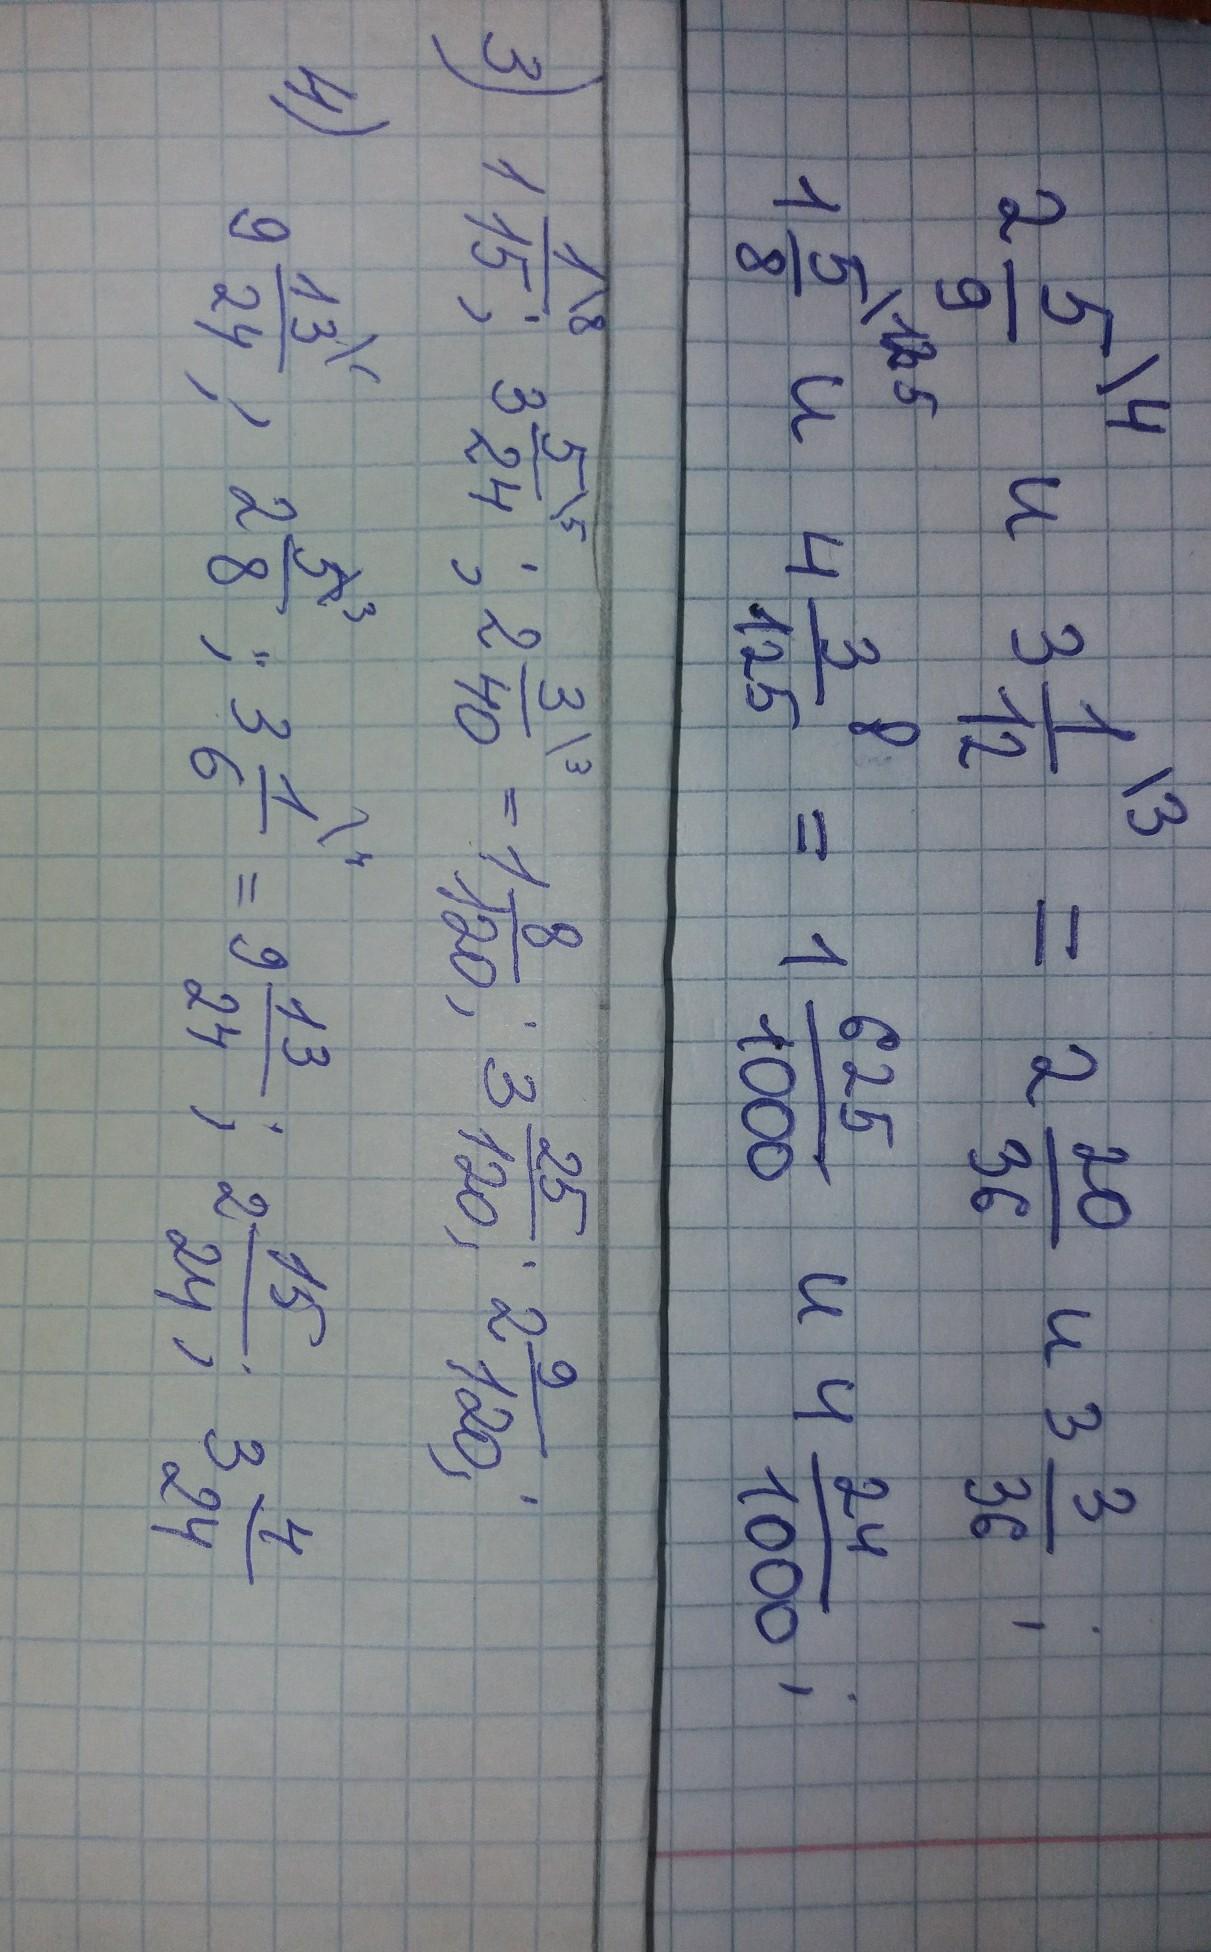 2 5/9 \4 и 3 1/12 \3 = 2 20/36 и 3 3/36 ;
1 5/8 \125 и 4 3/125 8 = 1 625/1000 и 4 24/1000 ;
3) 1 1/15 \8 ; 3 5/24 \5 ; 2 3/40 \3 = 1 8/120 ; 3 25/120 ; 2 9/120 ;
4) 9 13/24 \1 , 2 5/8 \3 ; 3 1/6 \4 = 9 13/24 ; 2 15/24 ; 3 4/24